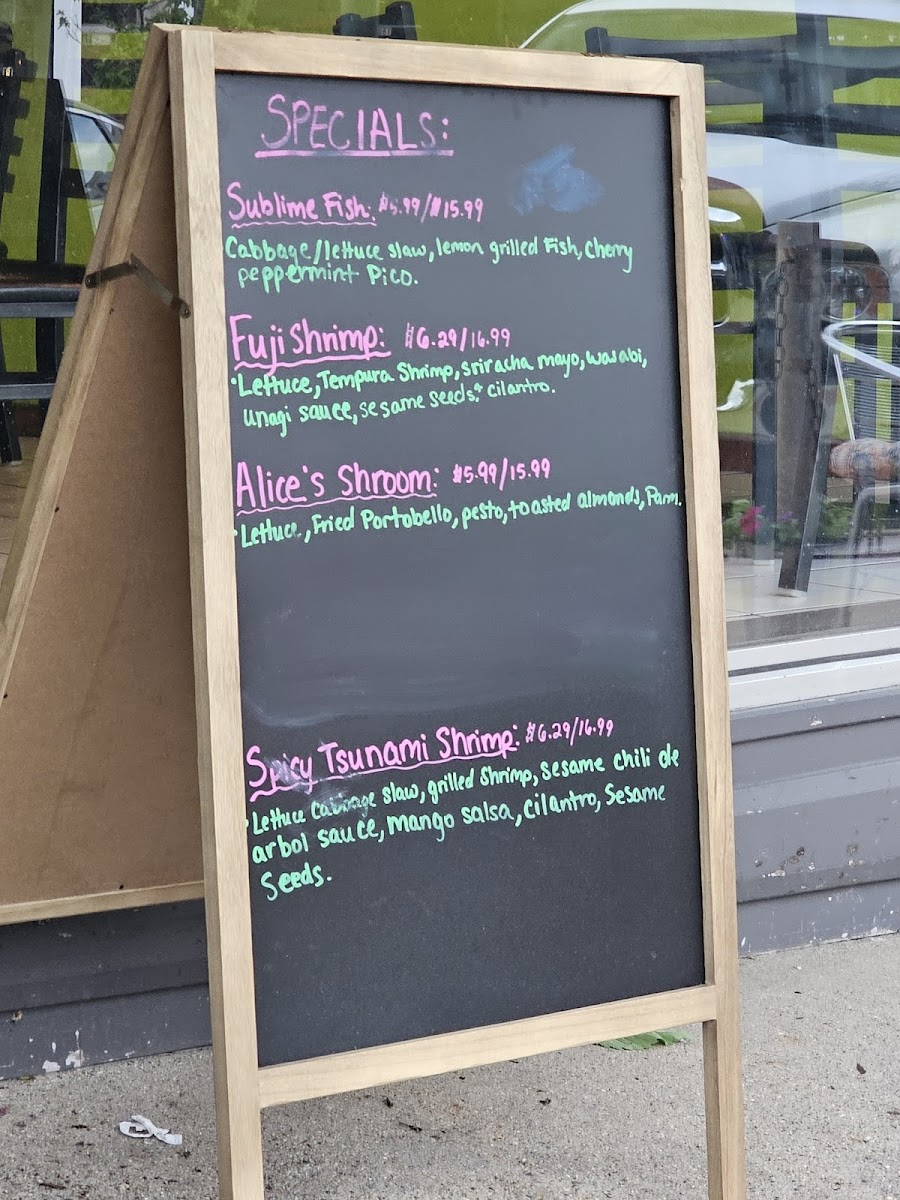 SPECIALS:
Sublime Fish: $5.99/$15.99
Cabbage/lettuce slaw, lemon grilled Fish, Cherry
peppermint Pico.
Fuji Shrimp: $6.29/16.99
•Lettuce, Tempura Shrimp, sriracha mayo, wasabi,
unagi sauce, sesame seeds & cilantro.
Alice's Shroom: $5.99/15.99
•Lettuce, Fried Portobello, pesto, toasted almonds, Parm.
Spicy Tsunami Shrimp: $6.29/16.99
•Lettuce Cabbage slaw, grilled Shrimp, sesame chili de
arbol sauce, mango salsa, cilantro, Sesame
Seeds.